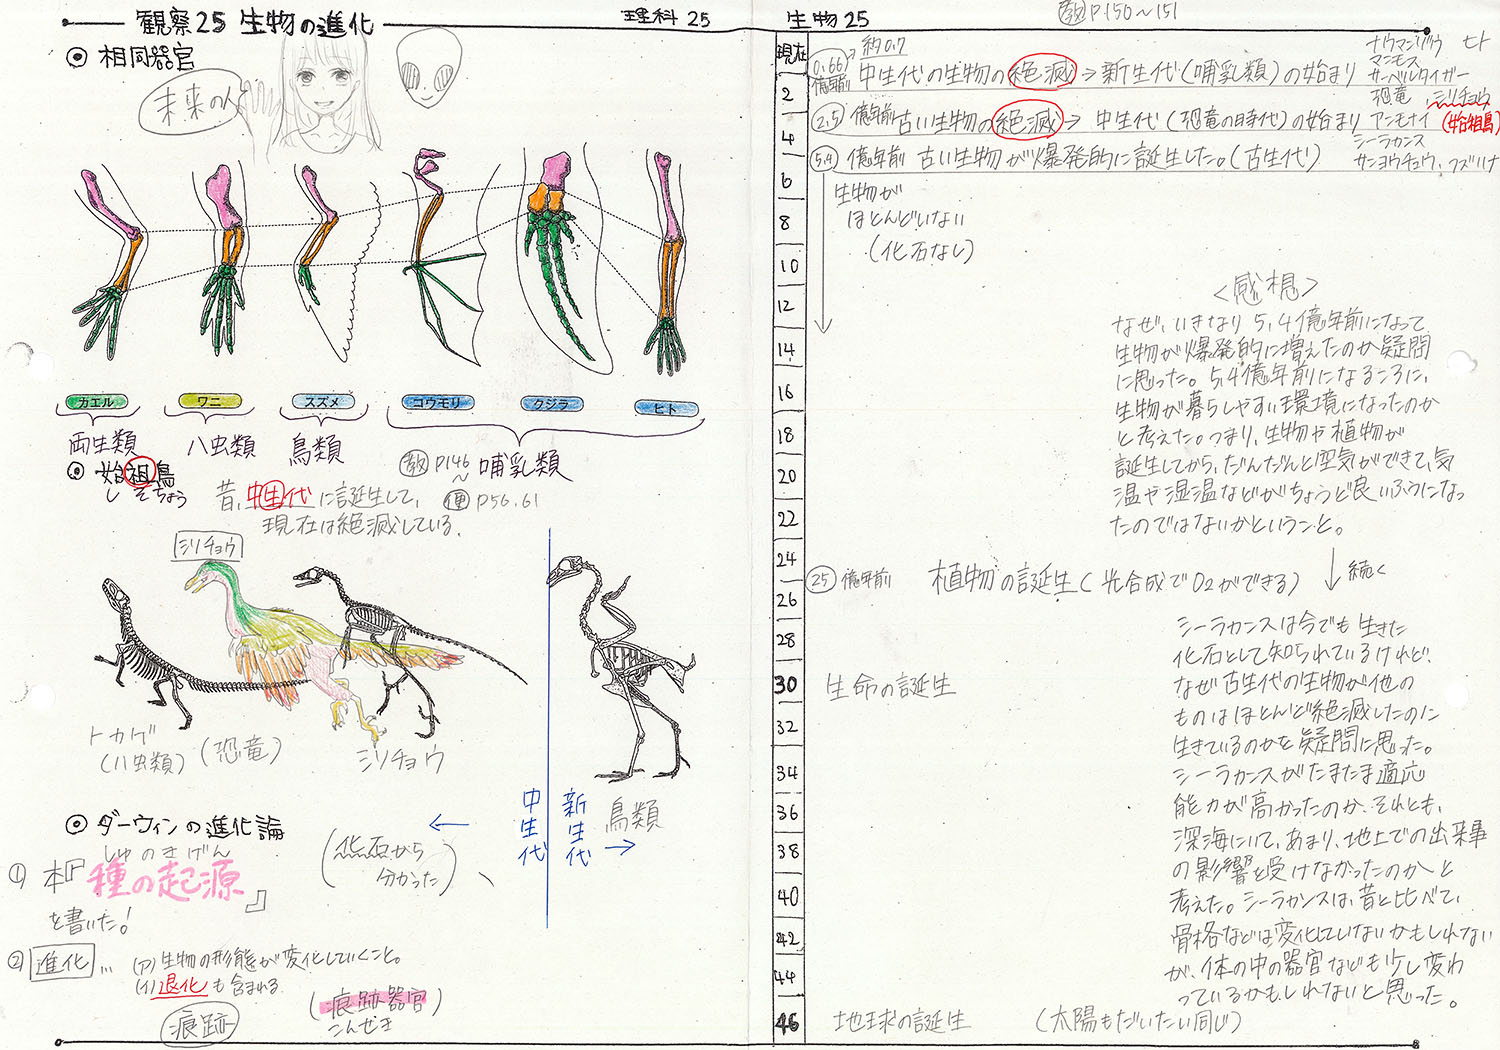 観察25 生物の進化
理科 25
◎ 相同器官
未来の人
カエル
ワニ
スズメ
コウモリ
クジラ
ヒト
両生類
ハ虫類
鳥類
哺乳類
教 P146〜
便 P56.61
◎ 始祖鳥
しそちょう
昔、中生代に誕生して、
現在は絶滅している。
シリチョウ
トカゲ
(ハ虫類)
(恐竜)
シリチョウ
中生代
新生代
鳥類
(化石から
分かった)
◎ ダーウィンの進化論
しゅのきげん
① 本『種の起源』
を書いた!
② 進化… (ア)生物の形態が変化していくこと。
(イ)退化も含まれる
痕跡
(痕跡器官)
こんせき
生物25
教 P150〜151
現在
2
4
6
8
10
12
14
16
18
20
22
24
26
28
30
32
34
36
38
40
42
44
46
約0.7
0.66億年前 中生代の生物の絶滅→新生代(哺乳類)の始まり
ナウマンゾウ ヒト
マンモス
サーベルタイガー
2.5 億年前 古い生物の絶滅→ 中生代(恐竜の時代)の始まり
恐竜、シリチョウ
アンモナイ (始祖鳥)
5.4 億年前 古い生物が爆発的に誕生した。(古生代)
シーラカンス
サンヨウチョウ、フズリナ
生物が
ほとんどいない
(化石なし)
<感想>
なぜ、いきなり5,4億年前になって
生物が爆発的に増えたのか疑問
に思った。5,4億年前になるころに、
生物が暮らしやすい環境になったのか
と考えた。つまり、生物や植物が
誕生してから、だんだんと空気ができて、気
温や湿温などがちょうど良いふうになっ
たのではないかということ。
↓ 続く
25 億年前 植物の誕生(光合成でO2ができる)
シーラカンスは今でも生きた
化石として知られているけれど、
なぜ古生代の生物が他の
ものはほとんど絶滅したのに
生きているのかを疑問に思った。
シーラカンスがたまたま適応
能力が高かったのか、それとも、
深海にいて、あまり、地上での出来事
の影響を受けなかったのかと
考えた。シーラカンスは、昔と比べて、
骨格などは変化していないかもしれない
が、体の中の器官なども少し変わ
っているかもしれないと思った。
生命の誕生
地球の誕生
(太陽もだいたい同じ)